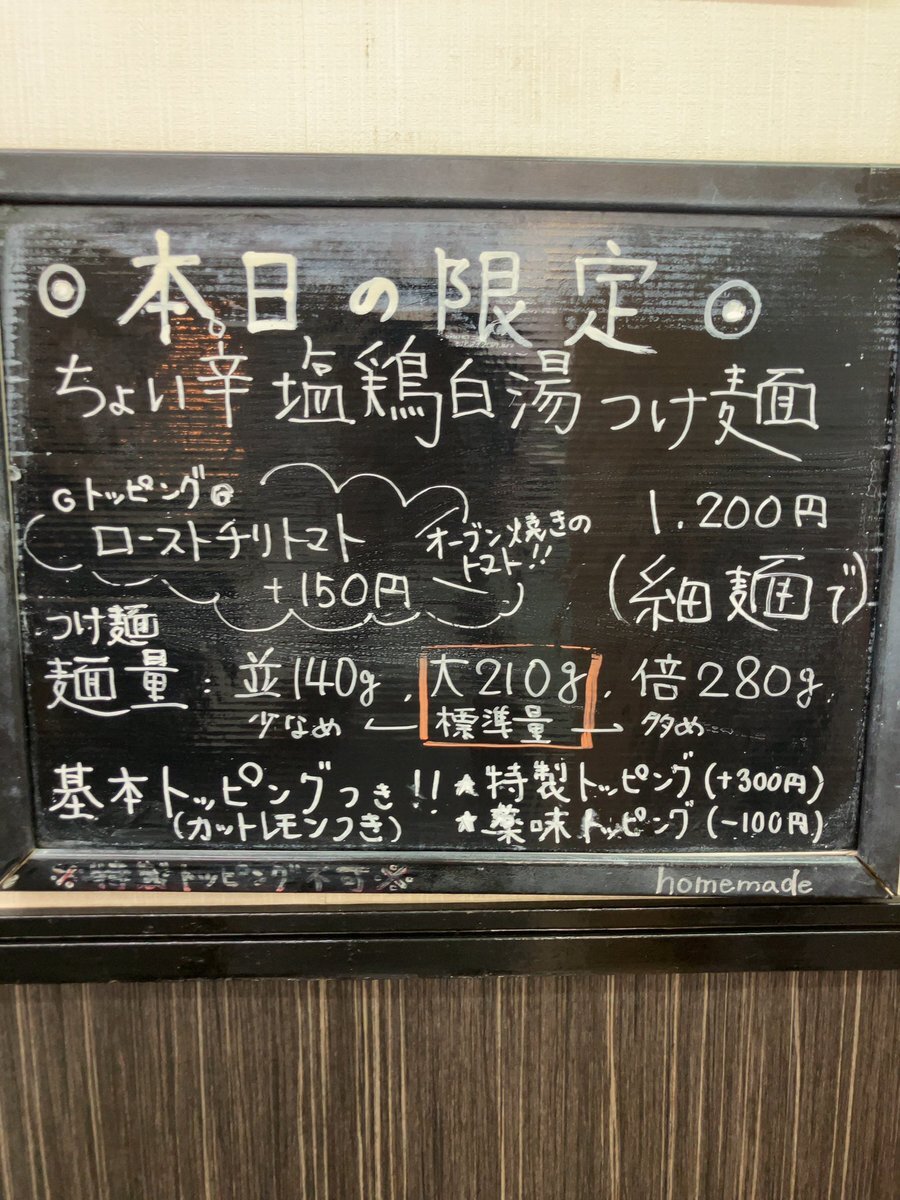 ◎ 本日の限定 ◎
ちょい辛 塩鶏白湯 つけ麺
◎トッピング◎
ローストチリトマト
+150円
オーブン焼きの
トマト!!
1.200円
(細麺で)
つけ麺
麺量:並140g, 大210g, 倍280g
少なめ ← 標準量 → 多め
基本トッピングつき!!
(カットレモンつき)
★特製トッピング(+300円)
★薬味トッピング(-100円)
※特製トッピング不可※
homemade